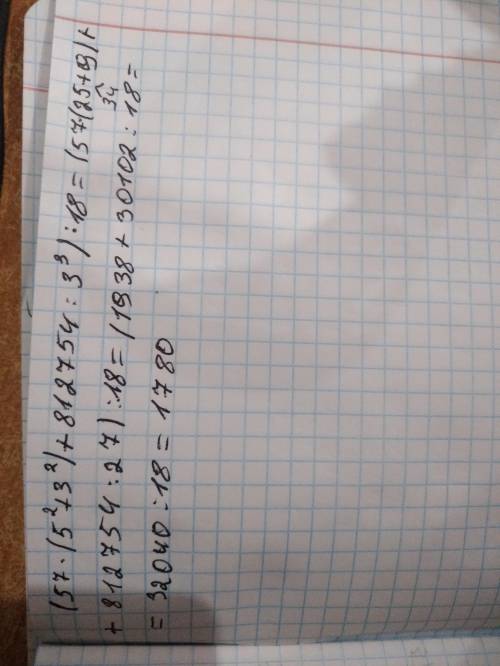 (57·(5²+3²)+812754:3³):18=(57·(25+9)+
34
+812754:27):18=(1938+30102:18=
=32040:18=1780